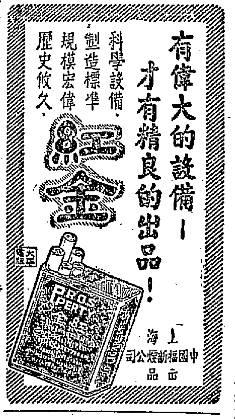 有偉大的設備—
才有精良的出品！
科學設備、
製造標準
規模宏偉
歷史攸久、
紅金
上海
中國福新煙公司
出品